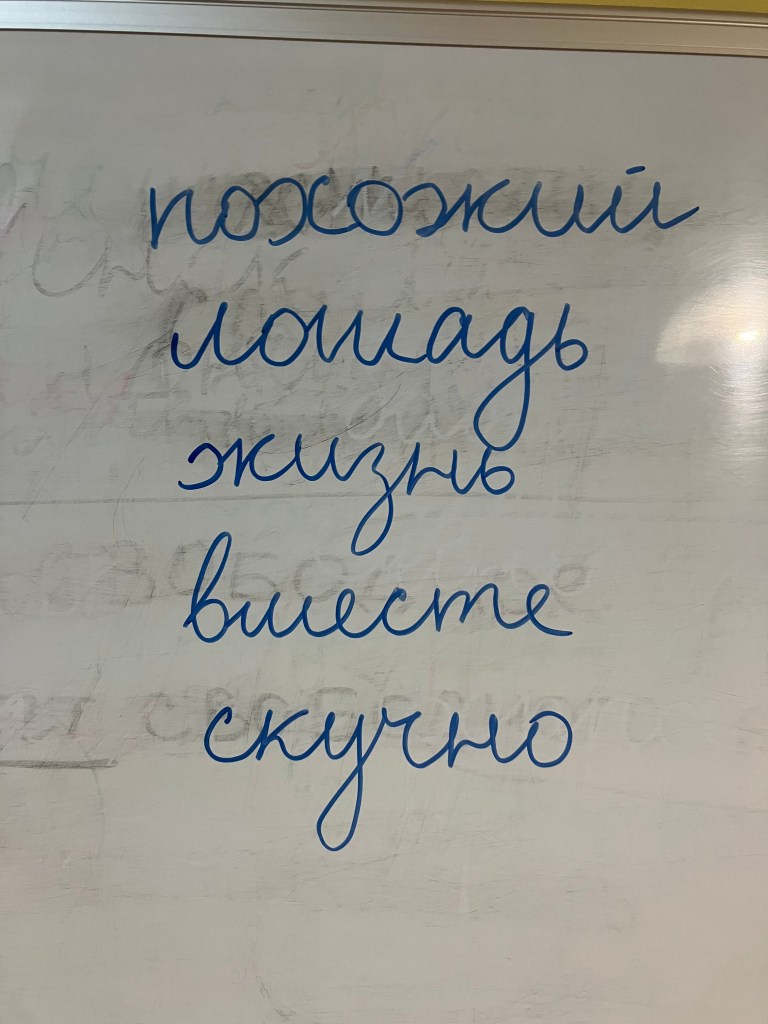 похожий
лошадь
жизнь
вместе
скучно